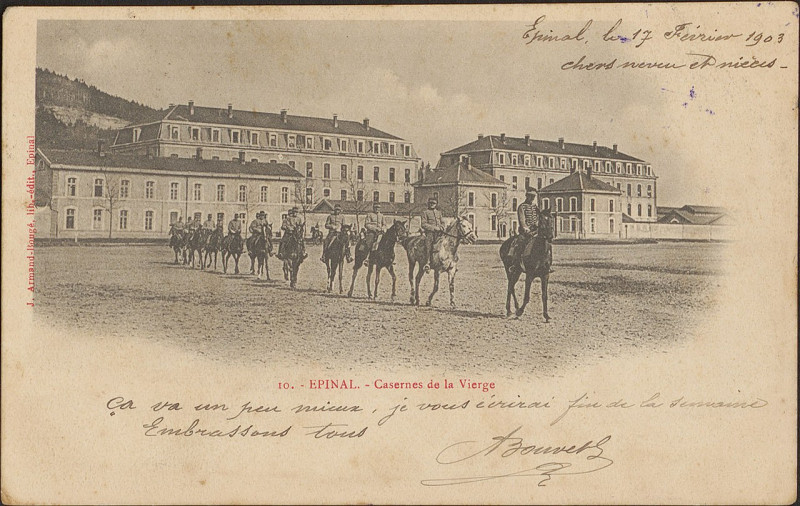 Epinal, le 17 Février 1903
chers neveu et nièces -
J. Armand-Rougé, lib.-édit., Epinal
10. - EPINAL. - Casernes de la Vierge
Ça va un peu mieux, je vous écrirai fin de la semaine
Embrassons tous
ABouvet